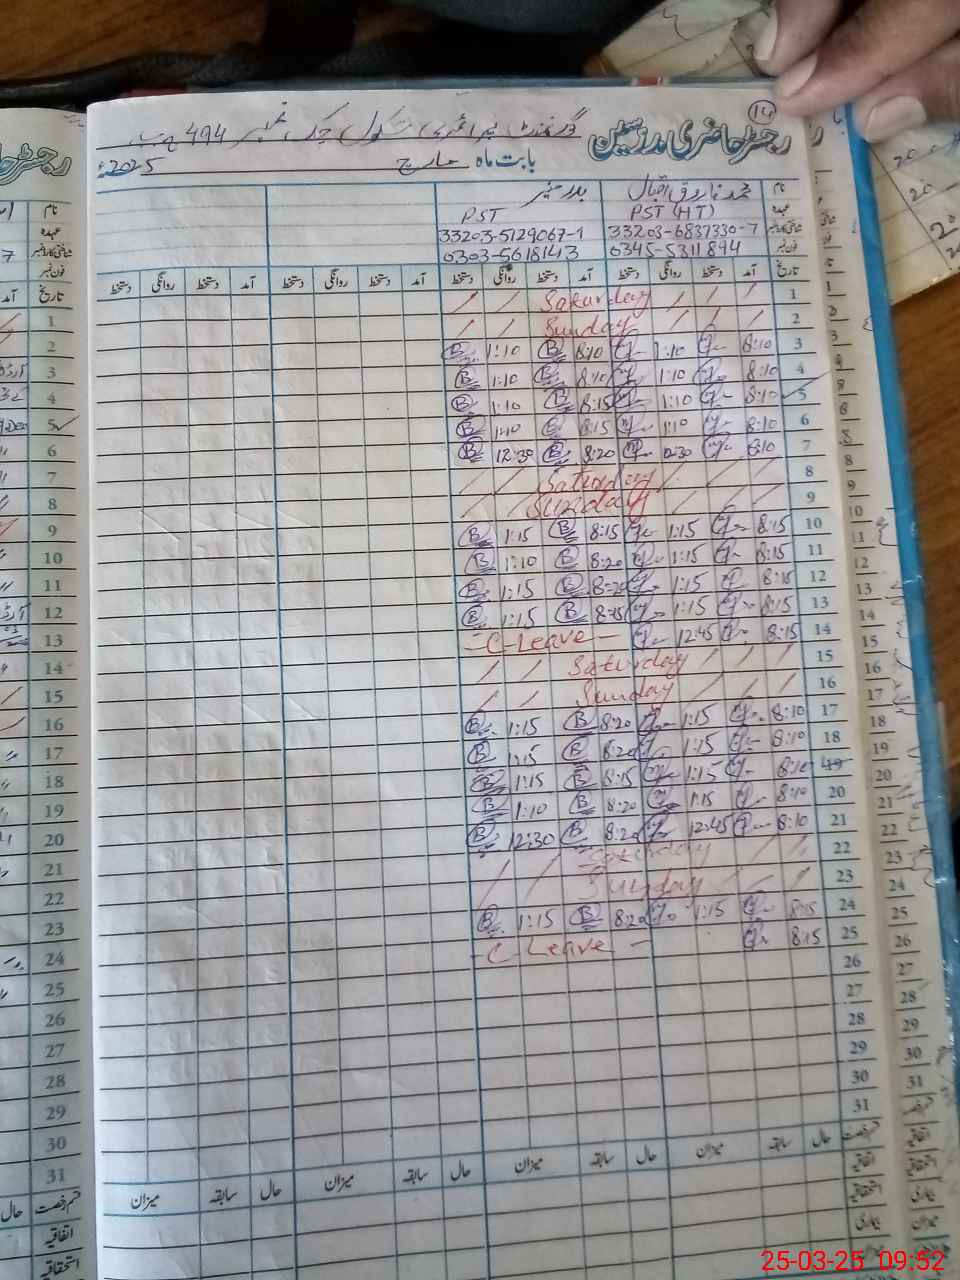 14
رجسٹر حاضری مدرسین گورنمنٹ پرائمری سکول چک نمبر 494 ج ب
بابت ماہ مارچ 2025ء
نام محمد فاروق اقبال بدر منیر
عہدہ PST (HT) PST
شناختی کارڈ نمبر 33203-6837330-7 33203-5129067-1
فون نمبر 0345-5311894 0303-5618143
تاریخ آمد دستخط روانگی دستخط آمد دستخط روانگی دستخط آمد دستخط روانگی دستخط آمد دستخط روانگی دستخط
1 Saturday
2 Sunday
3 8:10 1:10 8:10 B 1:10 B
4 8:10 1:10 8:10 B 1:10 B
5 8:10 1:10 8:15 B 1:10 B
6 8:10 1:10 8:15 B 1:10 B
7 8:10 12:30 8:20 B 12:30 B
8 Saturday
9 Sunday
10 8:15 1:15 8:15 B 1:15 B
11 8:15 1:15 8:20 B 1:10 B
12 8:15 1:15 8:20 B 1:15 B
13 8:15 1:15 8:15 B 1:15 B
14 8:15 12:45 - C-Leave -
15 Saturday
16 Sunday
17 8:10 1:15 8:20 B 1:15 B
18 8:10 1:15 8:20 B 1:15 B
19 8:10 1:15 8:15 B 1:15 B
20 8:10 1:15 8:20 B 1:10 B
21 8:10 12:45 8:20 B 12:30 B
22 Saturday
23 Sunday
24 8:15 1:15 8:20 B 1:15 B
25 8:15 - C-Leave -
26
27
28
29
30
31
قسم رخصت حال سابقہ میزان حال سابقہ میزان حال سابقہ میزان حال سابقہ میزان
اتفاقیہ
استحقاقیہ
بیماری
25-03-25 09:52